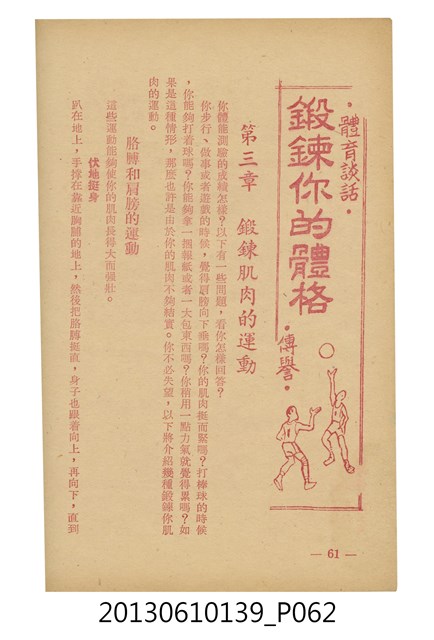 ·體育談話·
鍛鍊你的體格
·傅譽·
第三章 鍛鍊肌肉的運動
你體能測驗的成績怎樣?以下有一些問題,看你怎樣回答?
你步行、做事或者遊戲的時候,覺得肩膀向下垂嗎?你的肌肉挺而緊嗎?打棒球的時候
,你能夠打着球嗎?你能夠拿一捆報紙或者一大包東西嗎?你稍用一點力氣就覺得累嗎?如
果是這種情形,那麼也許是由於你的肌肉不夠結實。你不必失望,以下將介紹幾種鍛鍊你肌
肉的運動。
胳膊和肩膀的運動
這些運動能夠使你的肌肉長得大而强壯。
伏地挺身
趴在地上,手撐在靠近胸脯的地上,然後把胳膊挺直,身子也跟着向上,再向下,直到
— 61 —
20130610139_P062